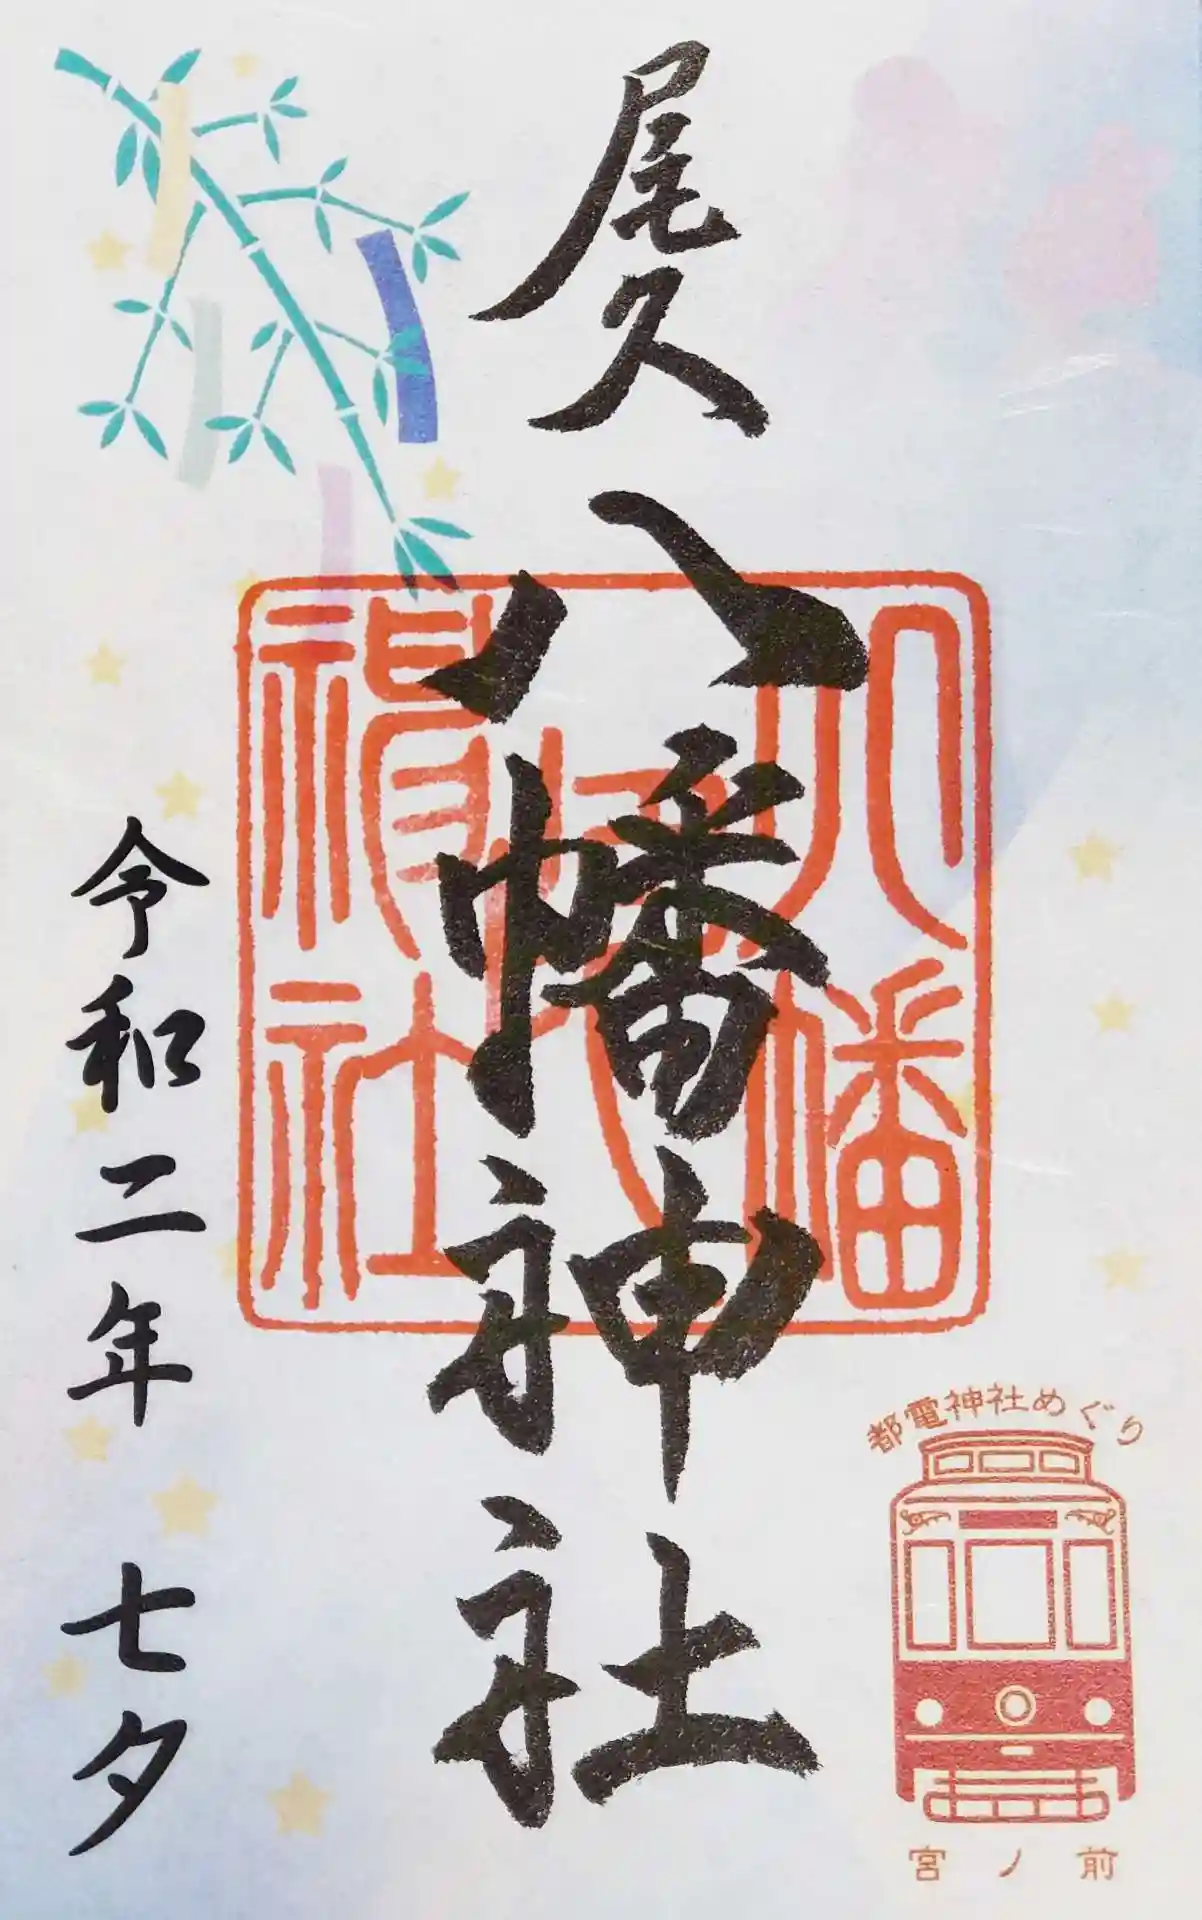 尾久
八幡神社
令和二年 七夕
八幡
神社
都電神社めぐり
宮ノ前